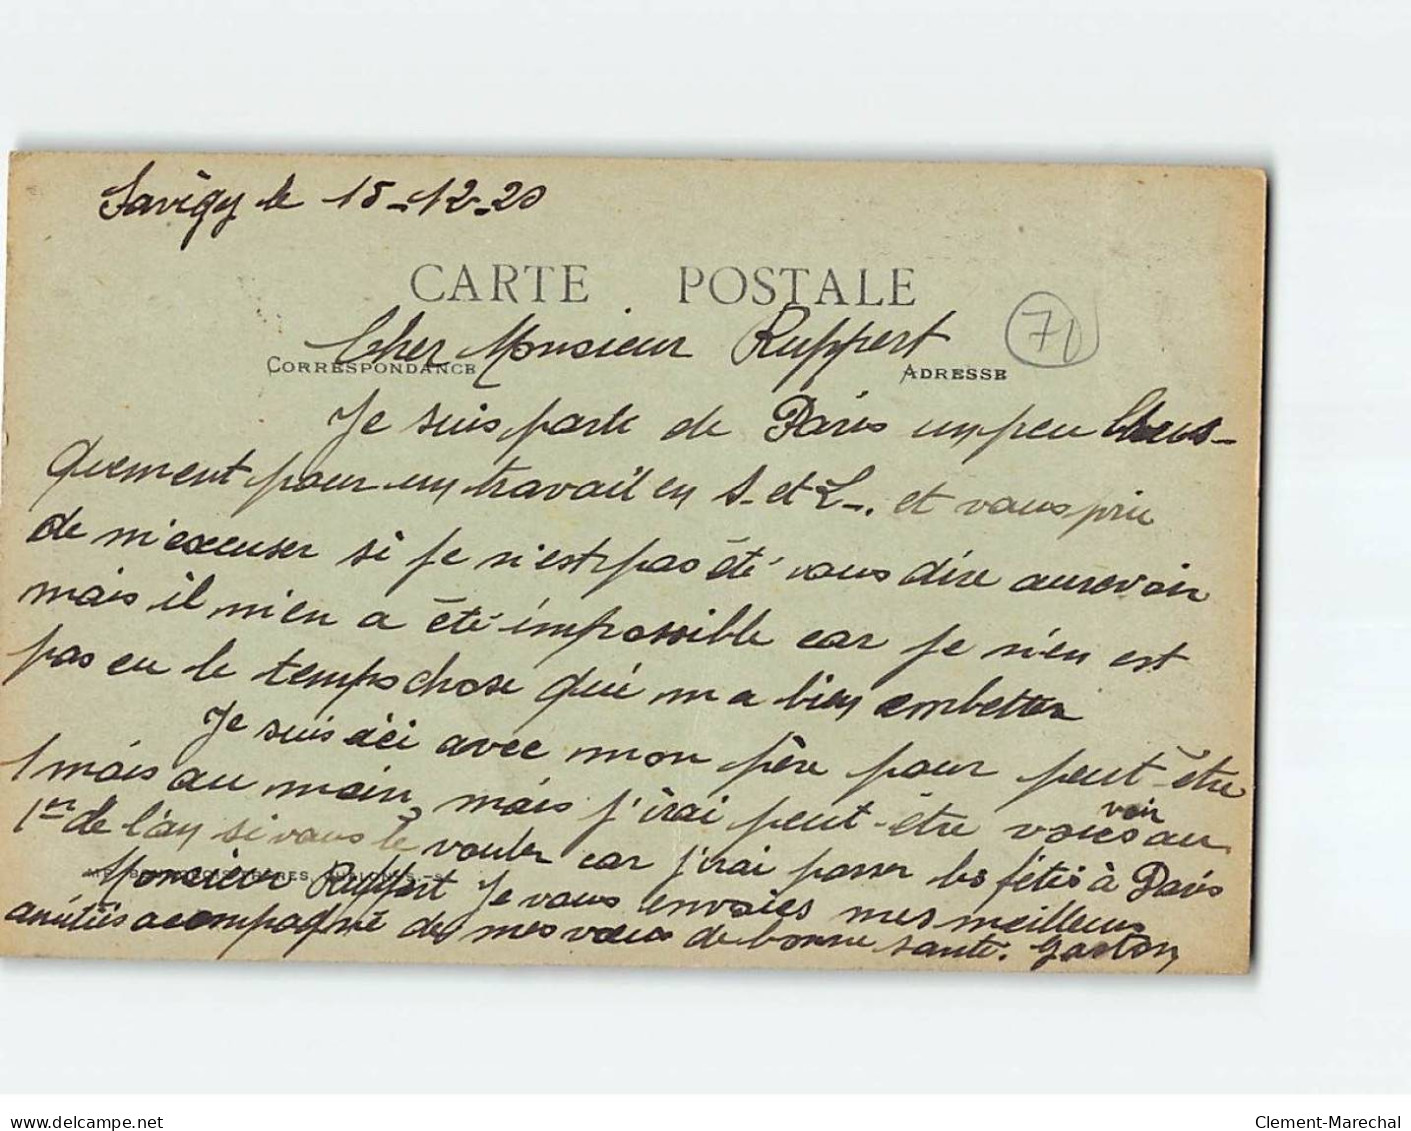 Savigy le 15-12-20
CARTE POSTALE
71
Cher Monsieur Ruppert
CORRESPONDANCE ADRESSE
Je suis partr de Paris un peu brus-
quement pour un travail en S. et L-. et vous prie
de m'excuser si je n'est pas été vous dire aurevoir
mais il m'en a été impossible car je n'en est
pas eu le temps chose qui m a bien embetter
Je suis ici avec mon père pour peut-être
1 mois au moin, mais j'irai peut-être voir au
1er de l'an si vous le vouler car j'irai passer les fêtes à Paris
Monsieur Ruppert Je vous envoies mes meilleurs
amitiés accompagné de mes vœux de bonne santé. Gaston
delcampe.net
Clement-Marechal